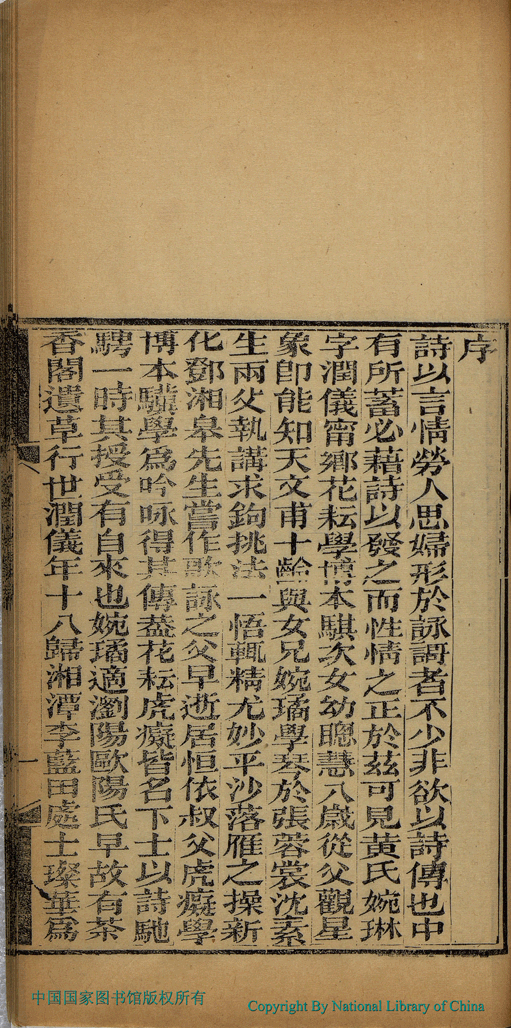 序
詩以言情勞人思婦形於詠謌者不少非欲以詩傳也中
有所蓄必藉詩以發之而性情之正於茲可見黃氏婉琳
字潤儀甯鄉花耘學博本騏次女幼聰慧八歲從父觀星
象即能知天文甫十齡與女兄婉璚學琴於張蓉裳沈素
生兩父執講求鉤挑法一悟輒精尤妙平沙落雁之操新
化鄧湘皋先生嘗作歌詠之父早逝居恒依叔父虎癡學
博本驥學為吟咏得其傳葢花耘虎癡皆名下士以詩馳
騁一時其授受有自來也婉璚適瀏陽歐陽氏早故有茶
香閣遺草行世潤儀年十八歸湘潭李藍田處士璨華為
中国国家图书馆版权所有
Copyright By National Library of China